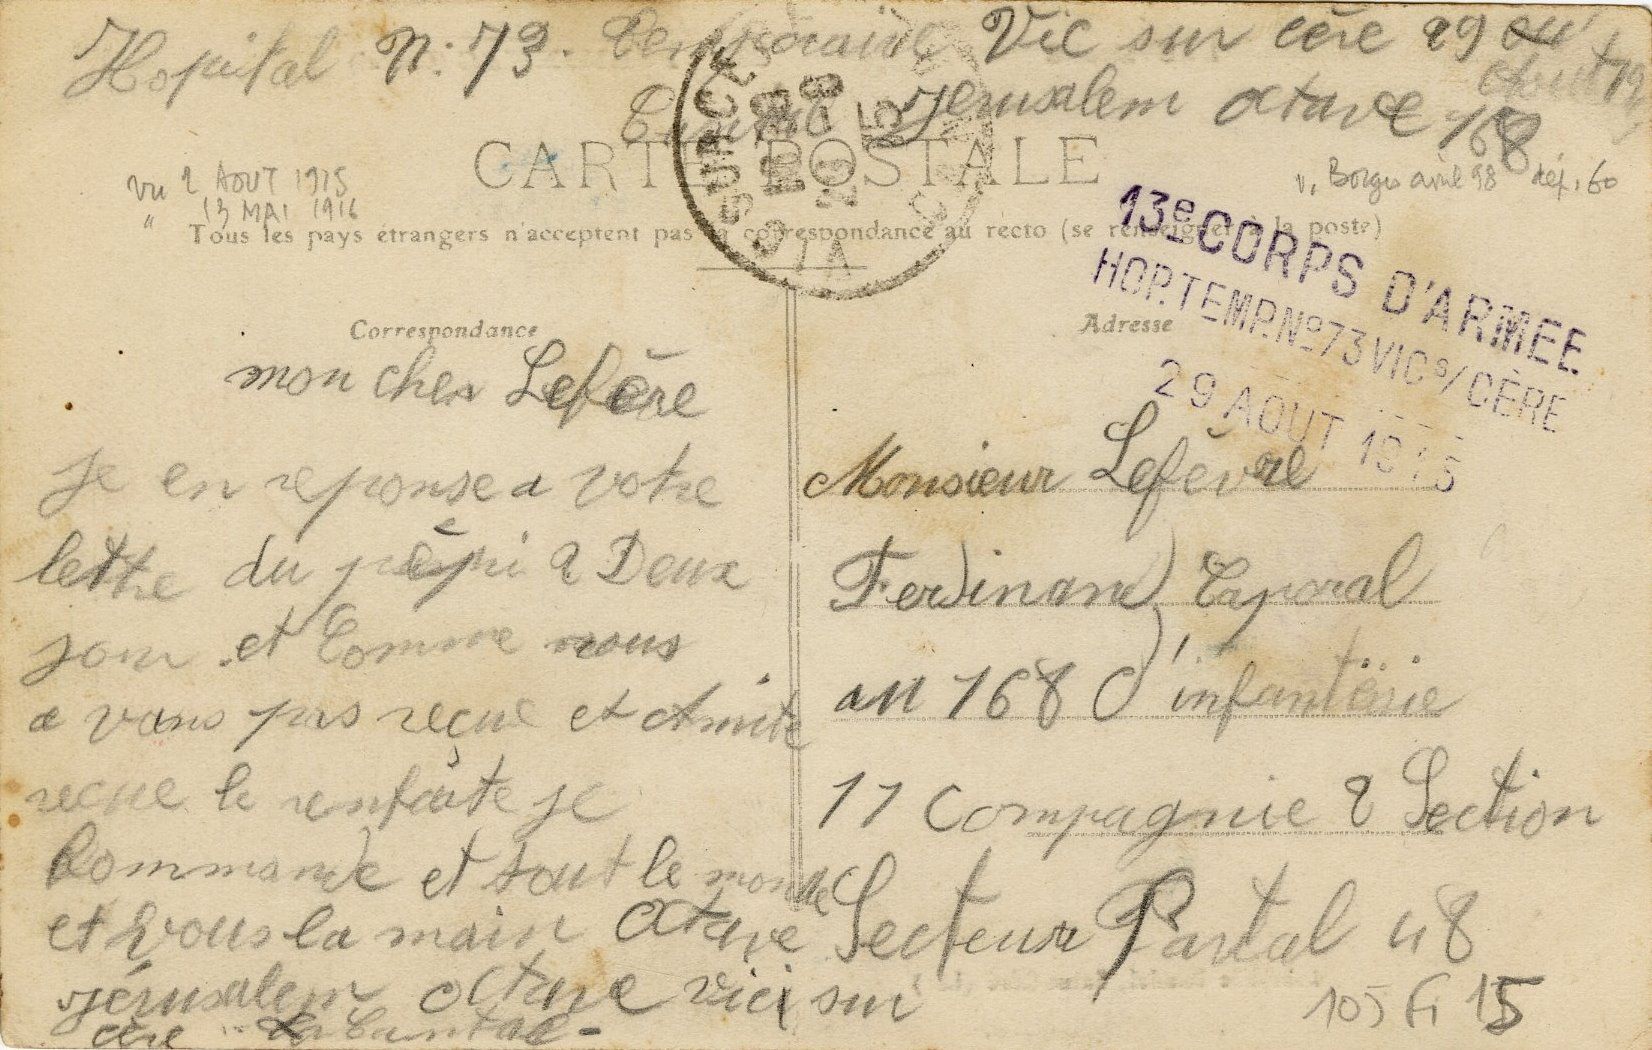 Hopital N: 73. Temporaire Vic sur cère 29
Cantal Jerusalem octave 168
CARTE POSTALE
vu 2 AOUT 1915
" 13 MAI 1916
v. Borges avril 98 dép. 60
Tous les pays étrangers n'acceptent pas la correspondance au recto (se renseigner à la poste)
13e CORPS D'ARMEE
HOP. TEMP. No 73 VIC s/ CÈRE
29 AOUT 1915
Correspondance
mon cher Lefère
je en reponse a votre
lettre du 2 Deux
jour et Comme nous
a vons pas reçue et
reçue le je
Commande et tout le monde
et Vous la main Octave
jérusalem octave vici sur
cère
Adresse
Monsieur Lefèvre
Ferdinand Caporal
au 168 d'infanterie
11 Compagnie 2 Section
Secteur Postal 48
105 Fi 15